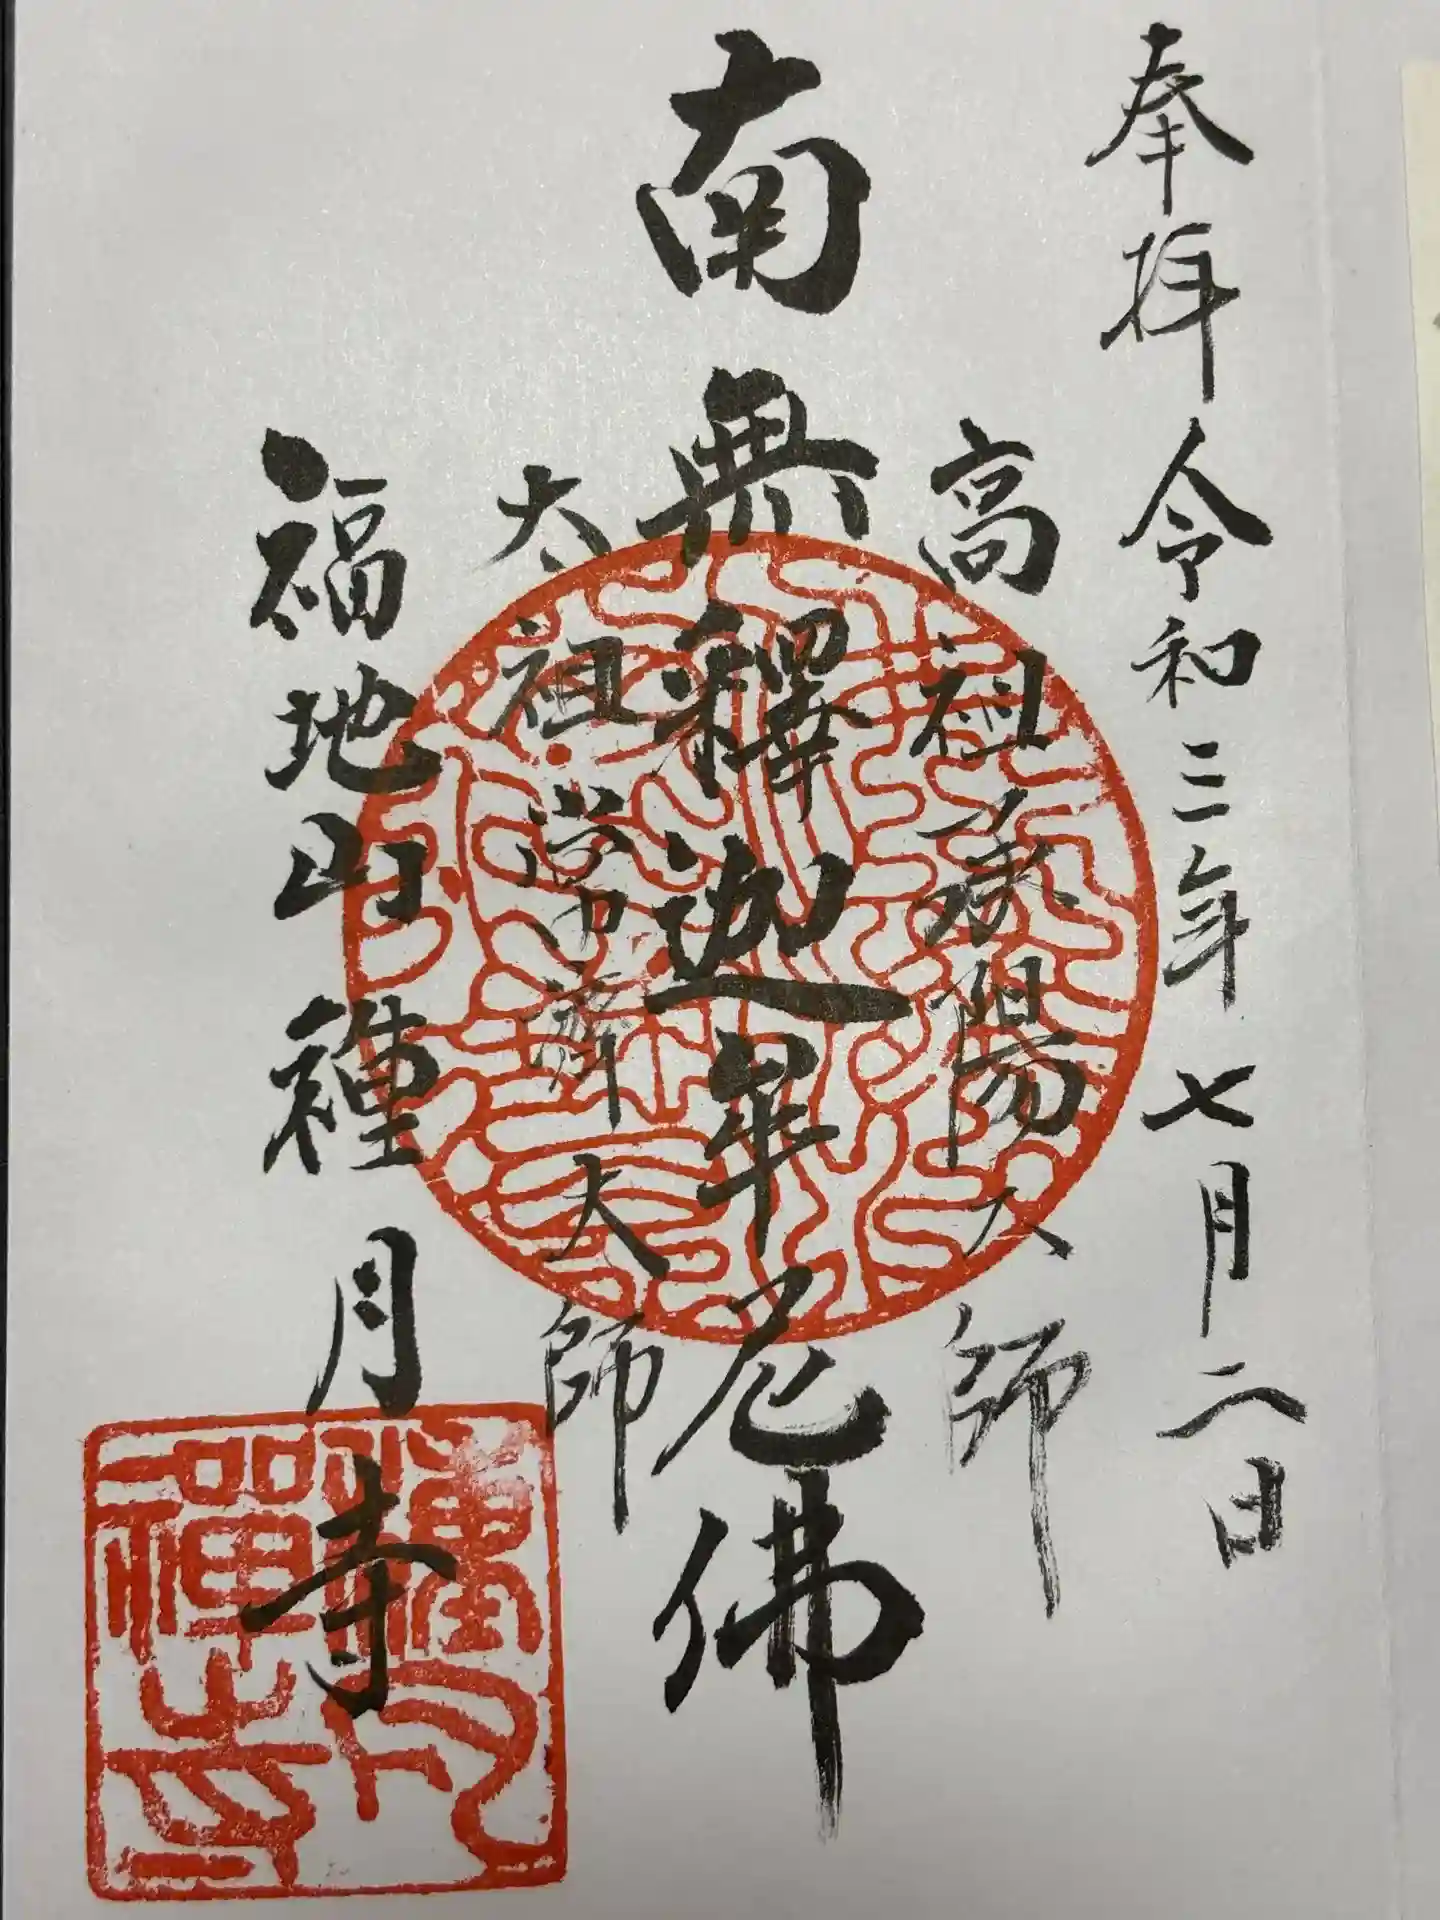 奉拝 令和三年七月二日
高祖承陽大師
南無釋迦牟尼佛
太祖常済大師
福地山 種月寺
種月禅寺